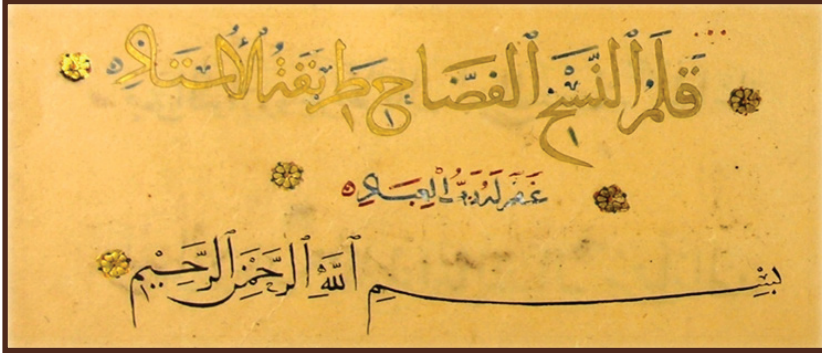 قَلَمُ النَّسْخِ الفَضَّاحِ طَرِيقَةُ الأُسْتَاذِ
غفر له رب العباد
بِسْمِ اللَّهِ الرَّحْمٰنِ الرَّحِيْمِ